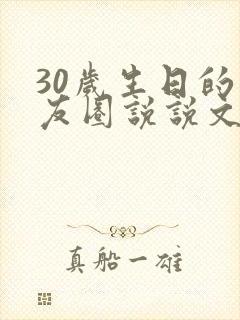 30歲生日的
友圈說說文
真船一雄